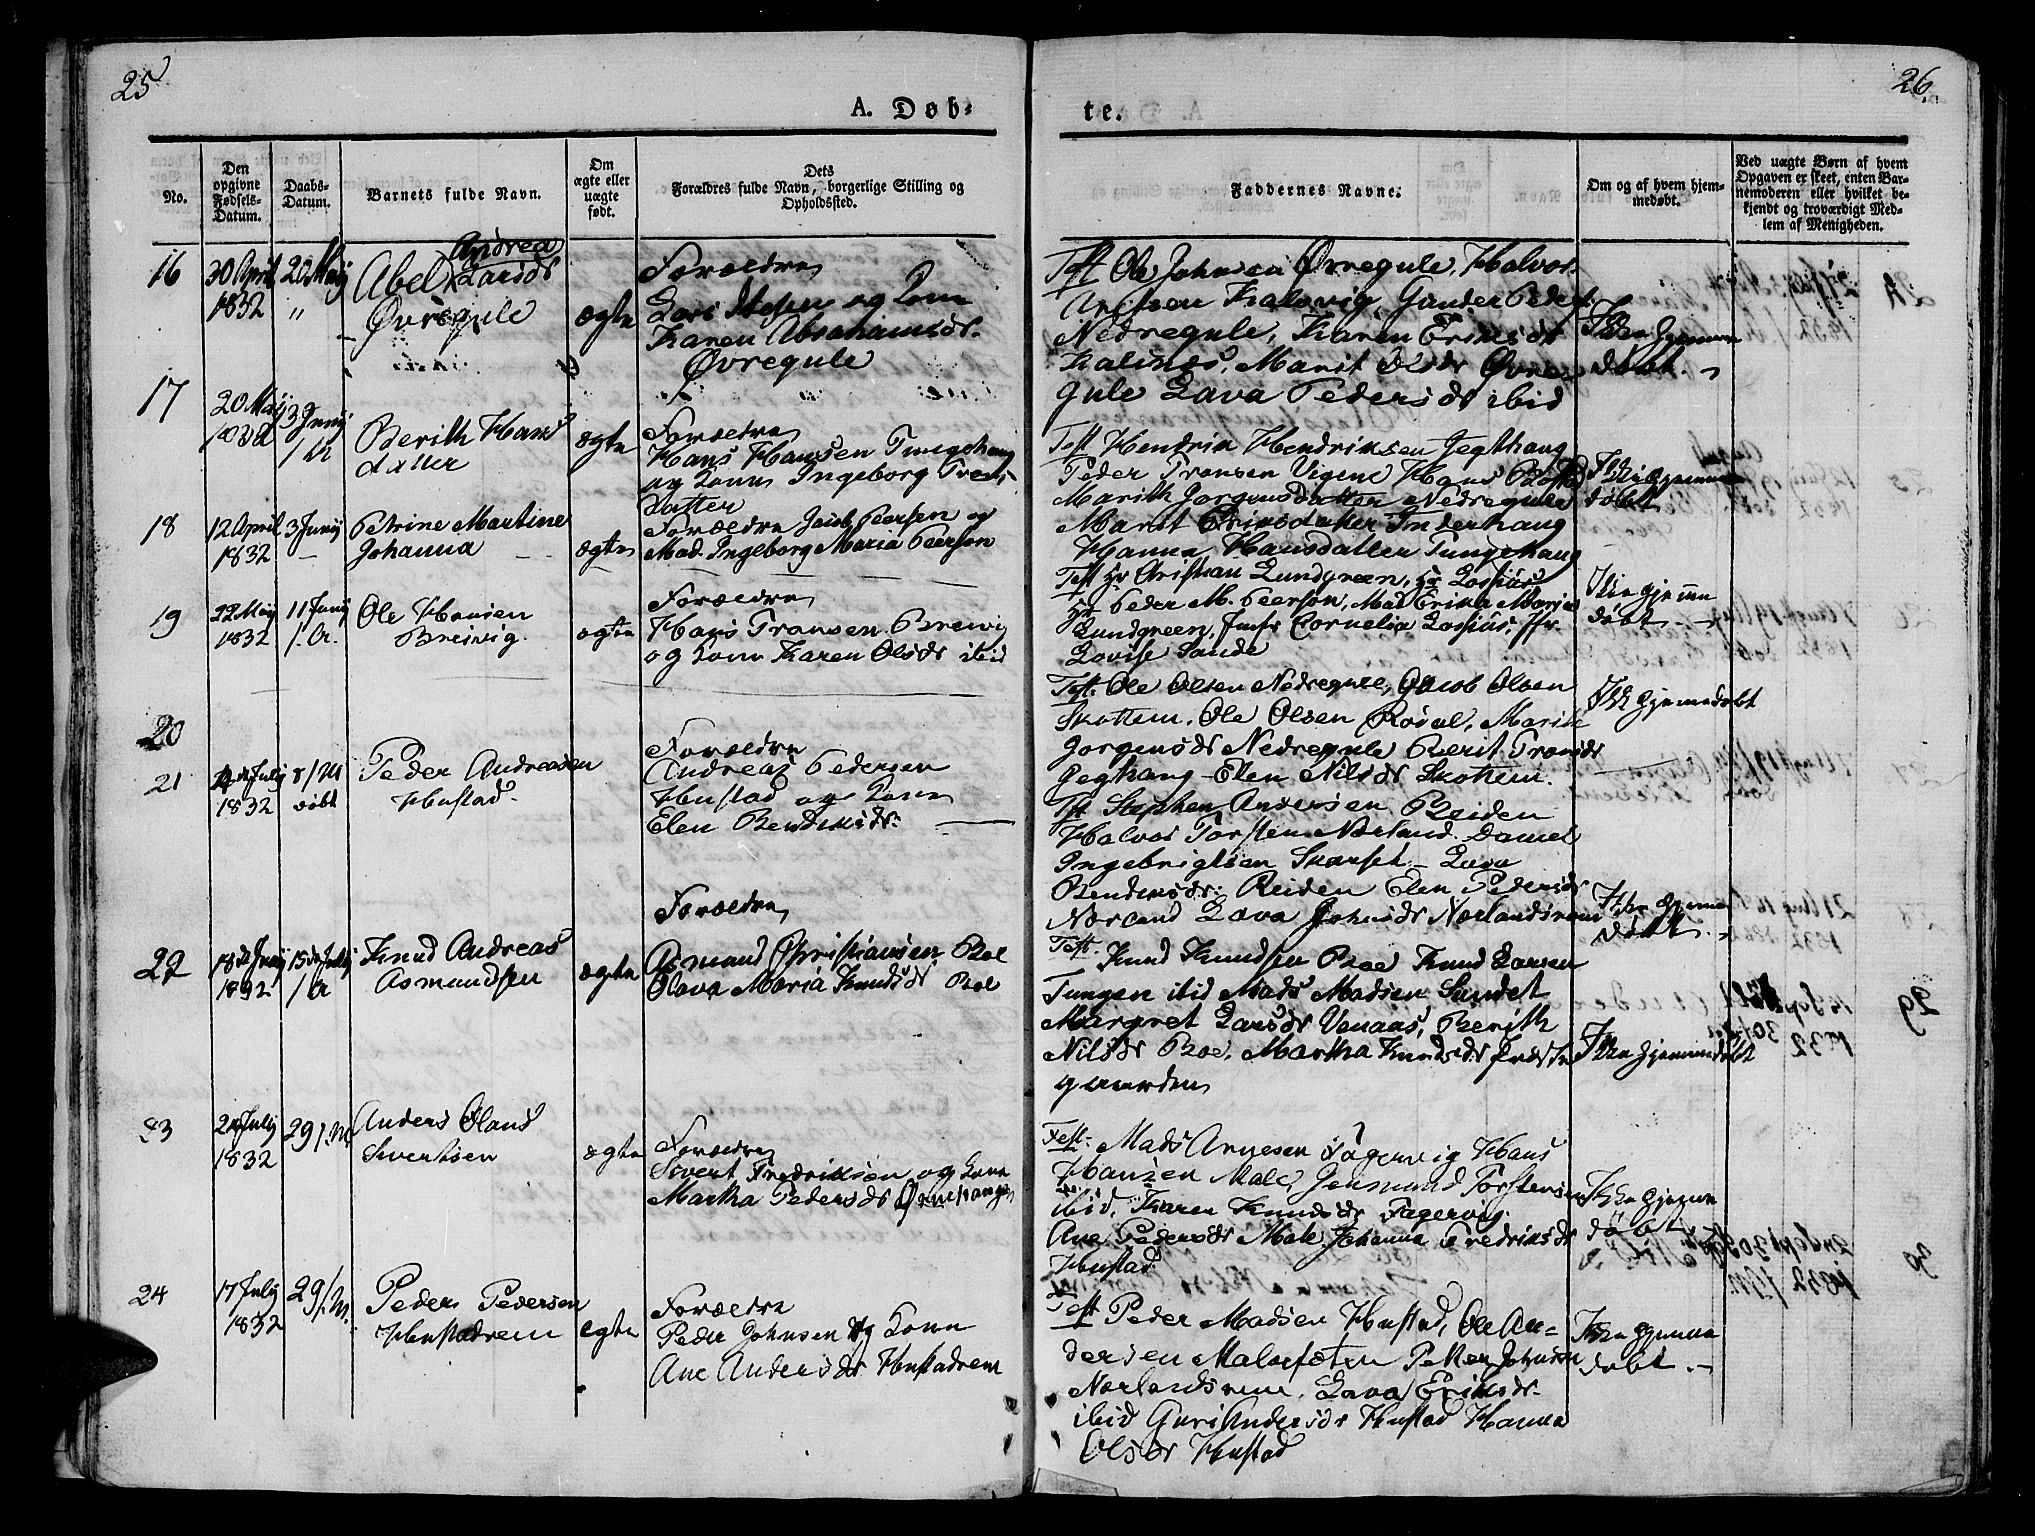 25
26
A. Døb-
te.
No.
Den opgivne Fødsels-Datum.
Daabs-Datum.
Barnets fulde Navn.
Om ægte eller uægte født.
Dets Forældres fulde Navn, borgerlige Stilling og Opholdssted.
Faddernes Navne.
Om og af hvem hjemmedøbt.
Ved uægte Børn af hvem Opgaven er skeet, enten Barnemoderen eller hvilket bekjendt og troværdigt Medlem af Menigheden.
16
30 April
1832
20 Maij
"
Andrea
Abel Larsdr
Øvregule
ægte
Forældre
Lars og Kone
Karen Abrahamsdr.
Øvregule
Test Ole Johnsen Øvregule, Halvor
Kalsvig, Gunder Peders.
Nedregule, Karen Eriksdr
Kalsnes, Marit Olsdr Øvre
gule Lava Pedersdr ibid
Ikke hjemme
døbt.
17
20 Maij
1832
3 Junij
Berith Hans
datter
ægte
Forældre
Hans Hansen Tungehaug
og Kone Ingeborg
Datter
Test Hendrik Hendriksen Jegthaug
Peder Transen Vigene Hans
Marith Jorgensdatter Nedregule
Marit Eriksdatter Inderhaug
Hanna Hansdatter Tungehaug
Ikke hjemme
døbt
18
12 April
1832
3 Junij
Petrine Martine
Johanna
ægte
Forældre Jacob Peersen og
Mad. Ingeborg Maria Peerson
Test Hr Christian Lundgreen, Hr Lossius
Hr Peder M. Peerson, Mad Erika Maria
Lundgreen, Jmfr Cornelia Lossius, Jfr
Lovise Sande
Ikke hjemme
døbt
19
22 Maij
1832
11 Junij
Ole Hansen
Breivig.
ægte
Forældre
Hans Transen Breivig
og Kone Karen Olsdr ibid
Test. Ole Olsen Nedregule, Jacob Olsen
Skottem, Ole Olsen Rødal, Marit
Jorgensdr Nedregule Berit Transdr
Jegthaug Elen Nilsdr Skottem.
Ikke hjemmedøbt
20
21
4 de Julij
1832
8/m
døbt
Peder Andreasen
Hustad.
Forældre
Andreas Pedersen
Hustad og Kone
Elen Bendiksdr:
Test Stephen Andersen Reiden
Halvor Torsten Norland Daniel
Ingebrigtsen Skarset Lava
Bendiksdr: Reiden Elen Pedersdr
Norland Lava Johnsdr Norlandsrem
Ikke hjemme
døbt
22
18 de Junij
1832
15 de Julij
Knud Andreas
Asmundsen
ægte
Forældre
Asmund Christiansen Boe
Olava Maria Knudsdr Boe
Test. Knud Knudsen Boe Knud Larsen
Tungen ibid Mads Madsen Sandet
Margret Larsdr Venaas, Berith
Nilsdr Boe, Martha Knudsdr Præste
gaarden
Ikke hjemmedøbt
23
Julij
1832
29/m.
Anders Øland
Sivertsen
ægte
Forældre
Sivert Fredriksen og Kone
Martha Pedersdr
Test. Mads Arnesen Fagervig Hans
Hansen Male, Jensmund Torstensen
ibid, Karen Knudsdr Fagervig
Ane Pedersdr Male Johanna Fredriksdr
Hustad
Ikke hjemme
døbt
24
17 Julij
1832
29/m.
Peder Pedersen
Hustadrem
ægte
Forældre
Peder Johnsen og Kone
Ane Andersdr Hustadrem
Test Peder Madsen Hustad, Ole An=
dersen Peder Johnsen
Norlandsrem, Lava Eriksdr.
ibid Guri Andersdr Hustad Hanna
Olsdr Hustad
Ikke hjemme
døbt.